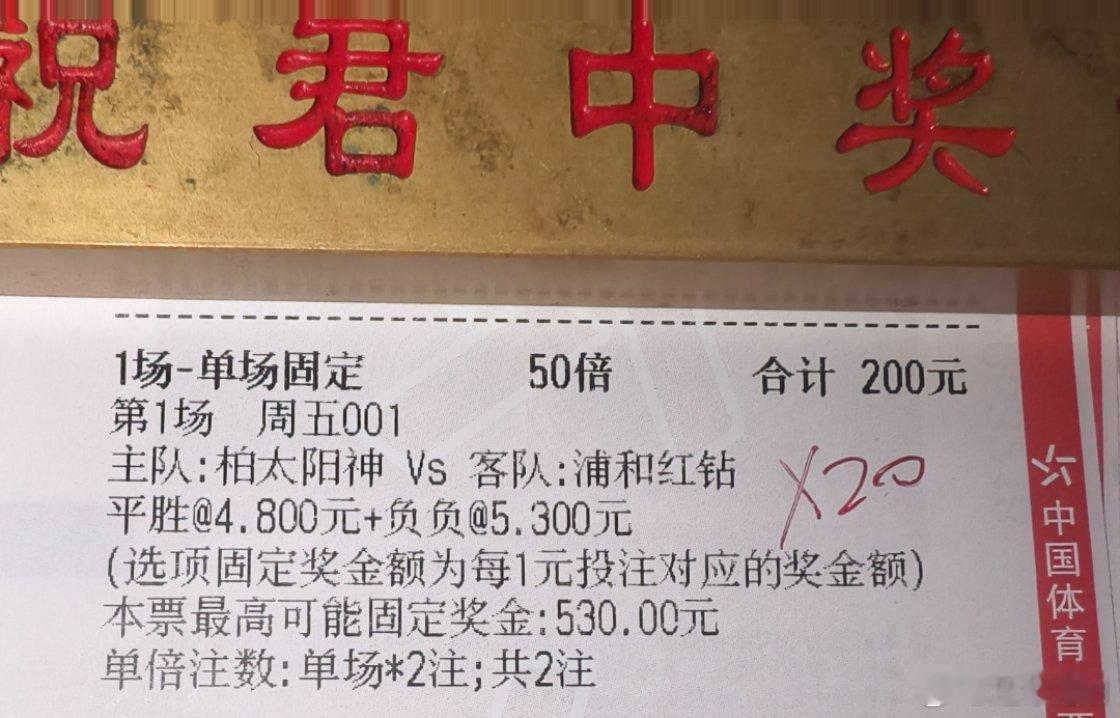 祝君中奖
1场-单场固定 50倍 合计 200元
第1场 周五001
主队:柏太阳神 Vs 客队:浦和红钻
X20
平胜@4.800元+负负@5.300元
(选项固定奖金额为每1元投注对应的奖金额)
本票最高可能固定奖金:530.00元
单倍注数:单场*2注;共2注
中国体育